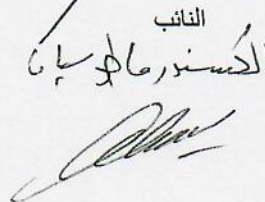 النائب
الكسندر ماطوسيان